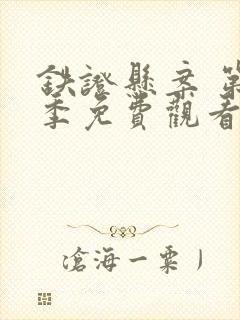 鉄證懸案 第
季免費觀看
滄海一粟丿